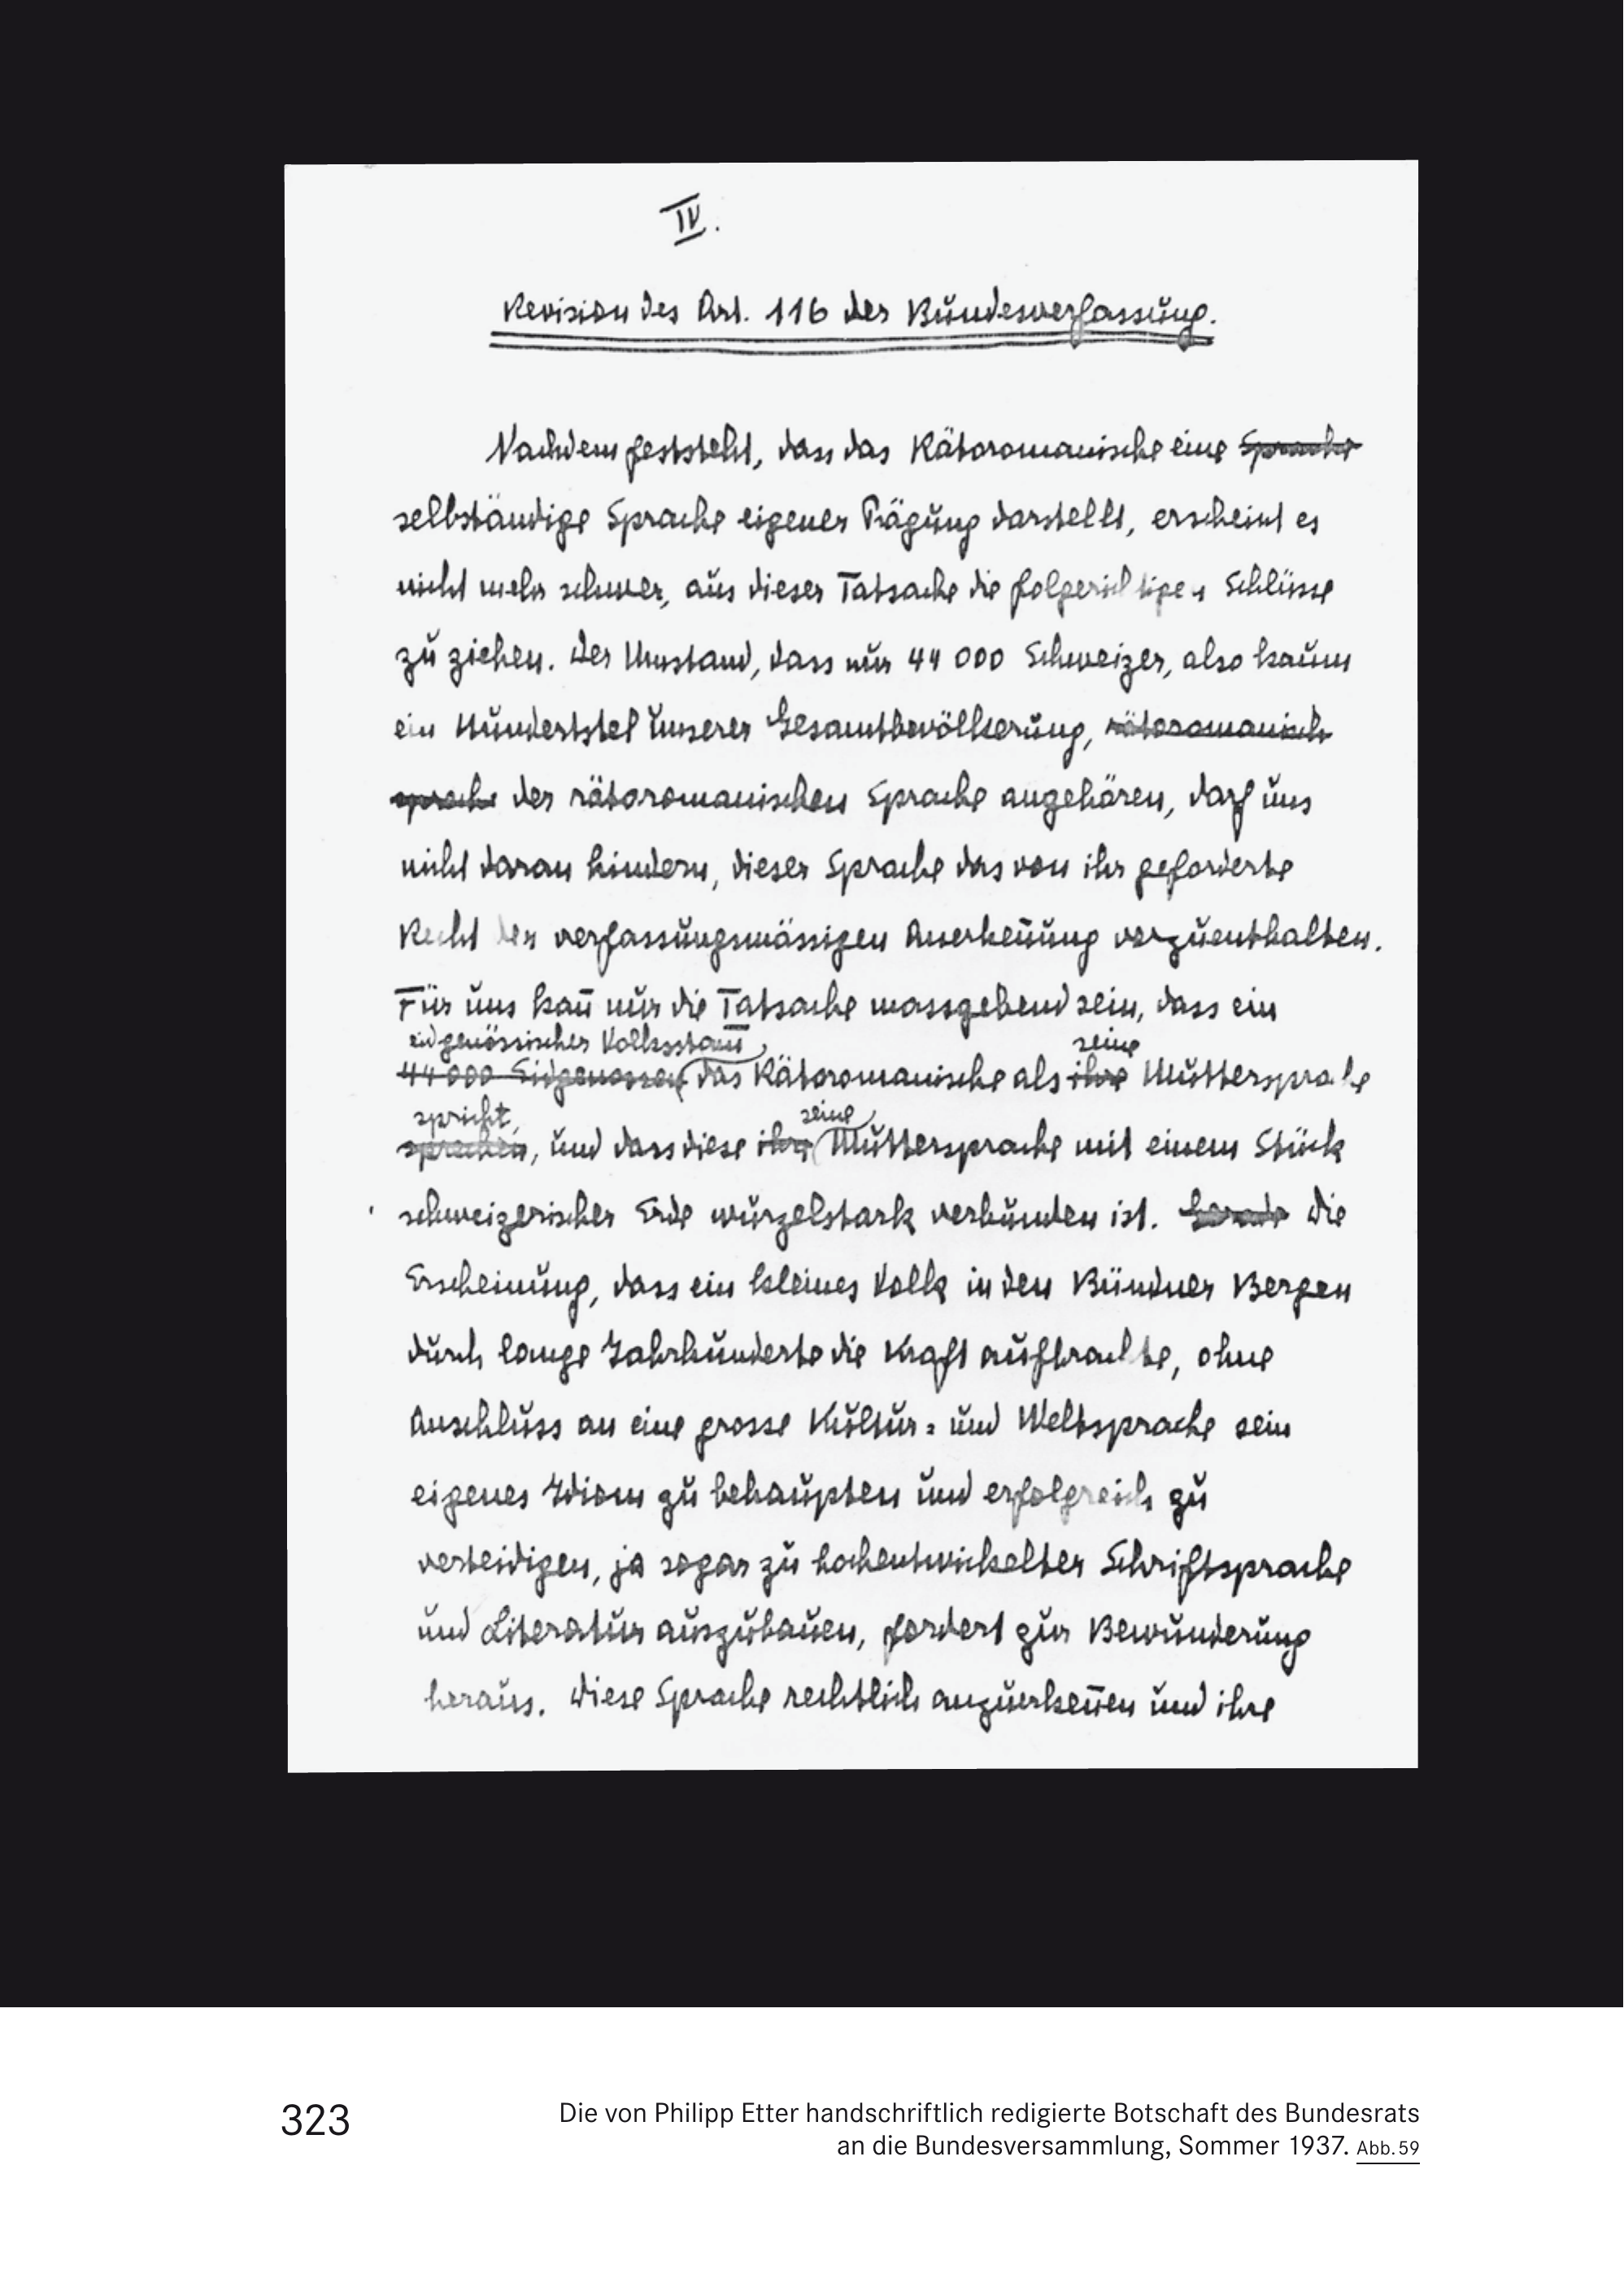 IV.
Revision des Art. 116 der Bundesverfassung.
Nachdem feststeht, dass das Rätoromanische eine Sprache
selbständige Sprache eigener Prägung darstellt, erscheint es
nicht mehr schwer, aus dieser Tatsache die folgerichtigen Schlüsse
zu ziehen. Der Umstand, dass nur 44 000 Schweizer, also kaum
ein Hundertstel unserer Gesamtbevölkerung, rätoromanisch
sprache der rätoromanischen Sprache angehören, darf uns
nicht daran hindern, dieser Sprache das von ihr geforderte
Recht der verfassungsmässigen Anerkeñung vorzuenthalten.
Für uns kañ nur die Tatsache massgebend sein, dass ein
eidgenössischer Volksstam̄ seine
44 000 Eidgenossen das Rätoromanische als ihre Muttersprache
spricht, seine
sprechen, und dass diese ihre Muttersprache mit einem Stück
schweizerischer Erde wurzelstark verbunden ist. Gerade die
Erscheinung, dass ein kleines Volk in den Bündner Bergen
durch lange Jahrhunderte die Kraft aufbrachte, ohne
Anschluss an eine grosse Kultur= und Weltsprache sein
eigenes Idiom zu behaupten und erfolgreich zu
verteidigen, ja sogar zu hochentwickelter Schriftsprache
und Literatur auszubauen, fordert zur Bewunderung
heraus. Diese Sprache rechtlich anzuerkeñen und ihre
323
Die von Philipp Etter handschriftlich redigierte Botschaft des Bundesrats
an die Bundesversammlung, Sommer 1937. Abb. 59